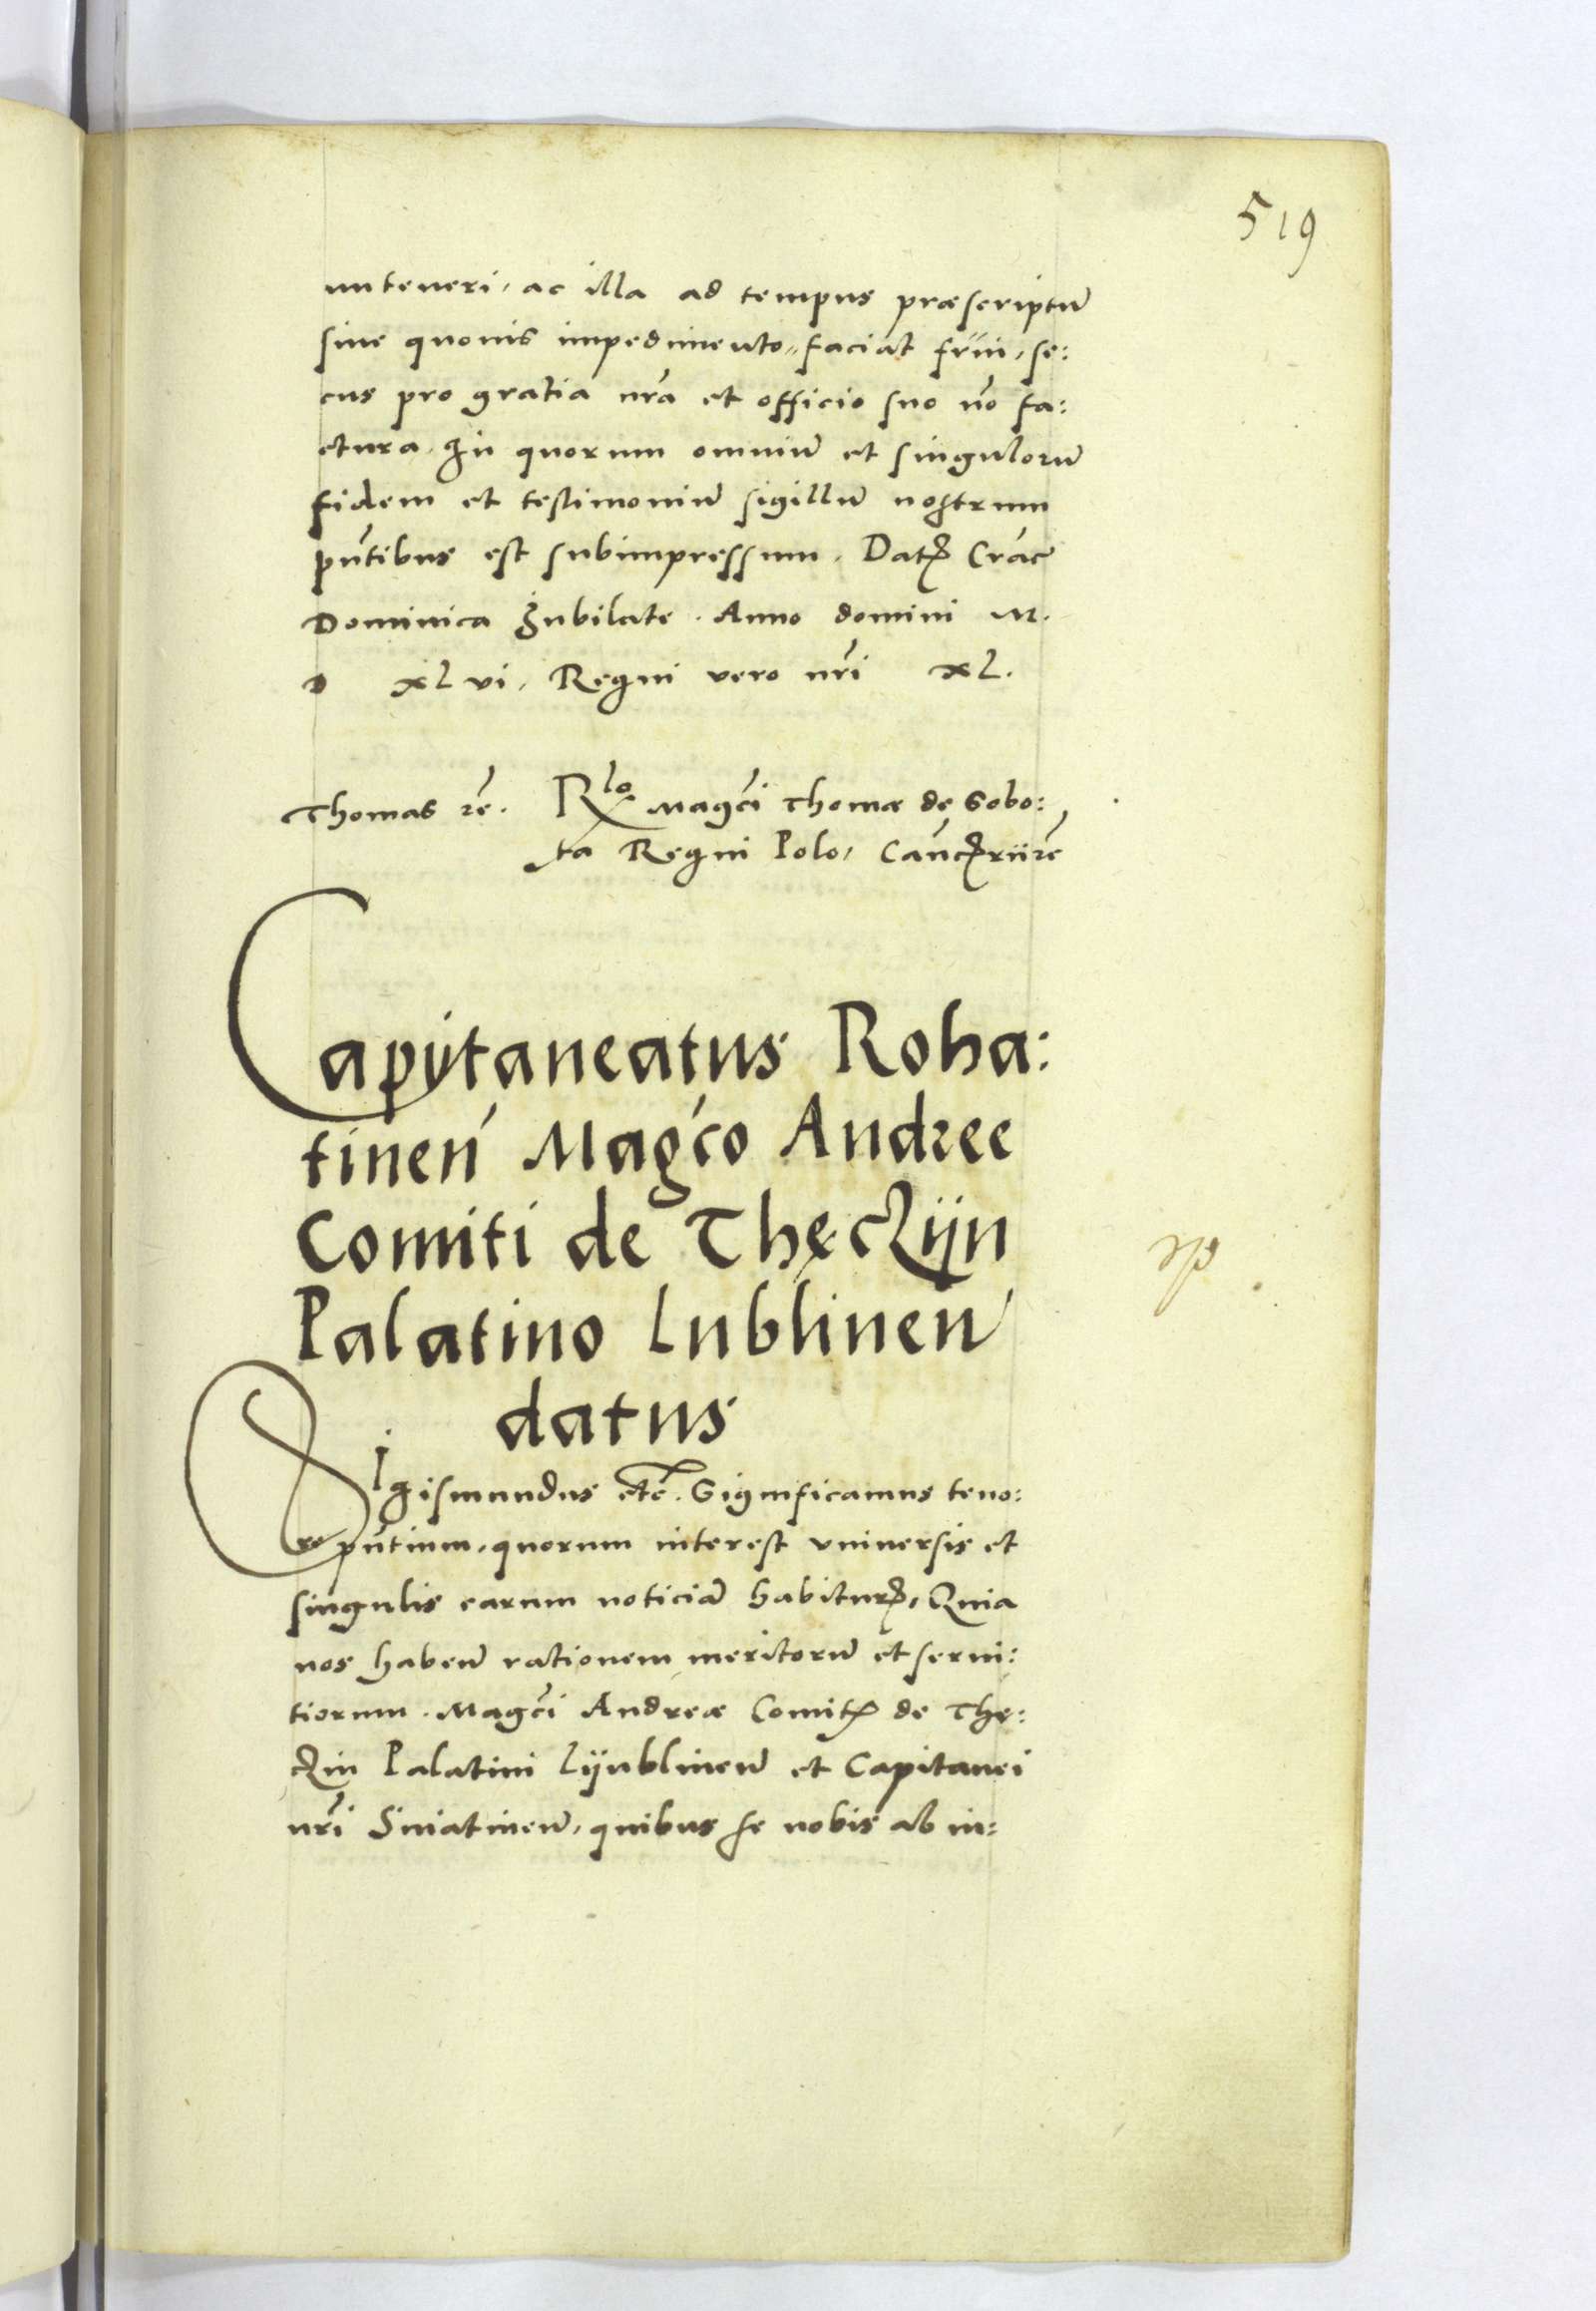 519
unteneri, ac illa ad tempus præscriptū
sine quovis impedimento, faciat frui, se:
cus pro gratia nrā et officio suo nō fa:
ctura. In quorum omniū et singulorū
fidem et testimoniū sigillū nostrum
pn̄tibus est subimpressum. Datꝭ Crac̄
Dominica Jubilate. Anno domini M.
D xlvi, Regni vero nrī xl.
Thomas rē. Rlo Magc̄i Thomæ de Sobo:
ta Regni Polo, Canc̄rii rē
Capÿtaneatus Roha:
tinen̄ Magc̄o Andree
Comiti de Thęczÿn
Palatino Lublinen̄
datus
Sigismundus etc̄. Significamus teno:
re pn̄tium, quorum interest universis et
singulis earum noticiā habiturꝭ, Quia
nos haben̄ rationem meritorū et servi:
tiorum. Magc̄i Andreæ Comitꝭ de Thę:
czin Palatini Lÿublinen̄ et Capitanei
nrī Sniatinen̄, quibus se nobis ab in: